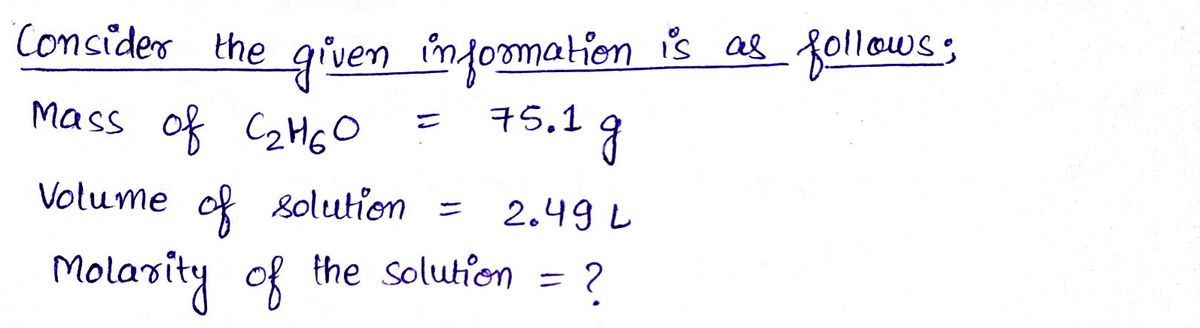 Consider the given information is as follows;
Mass of C₂H₆O = 75.1 g
Volume of solution = 2.49 L
Molarity of the solution = ?